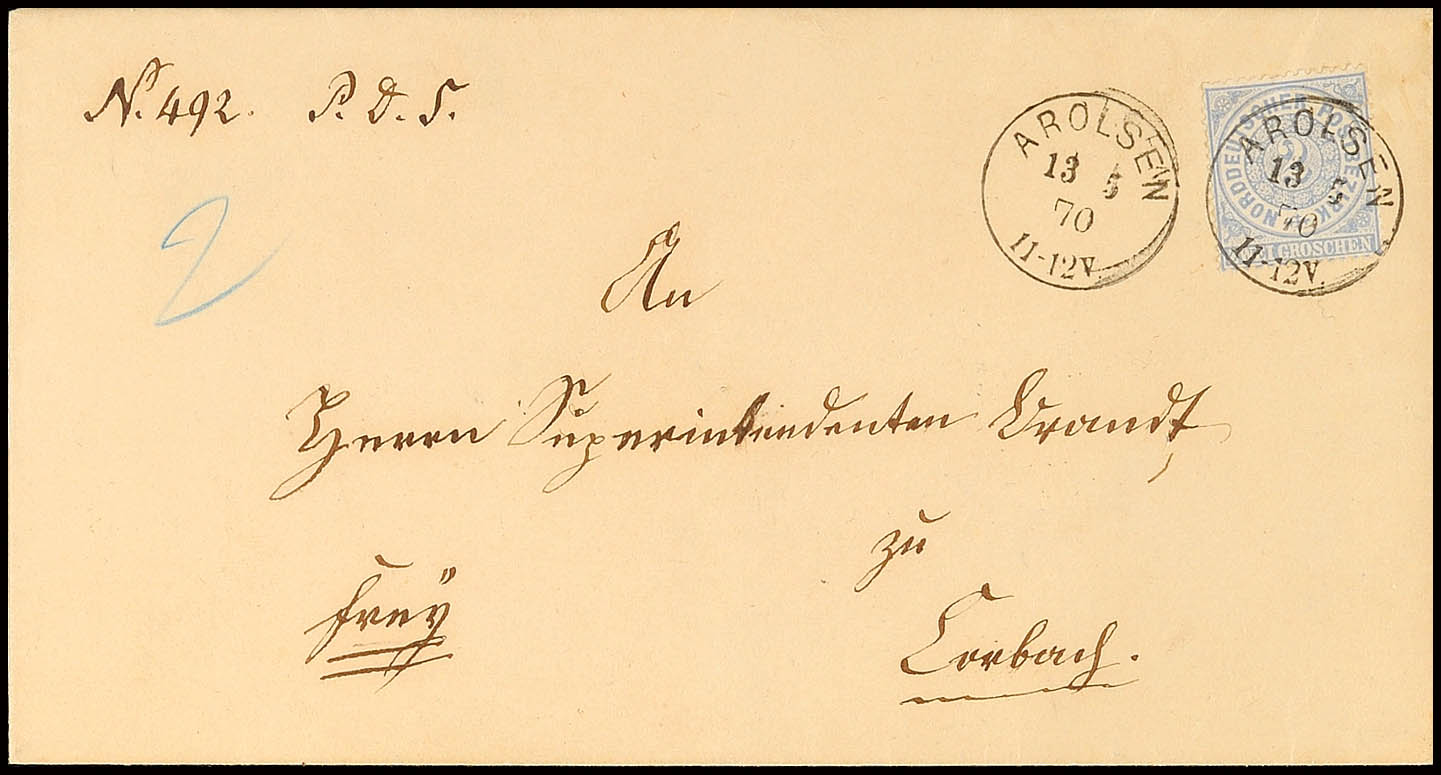 No. 492. P. D. S.
AROLSEN
13 5
70
11-12V.
NORDDEUTSCHER POSTBEZIRK
2
ZWEI GROSCHEN
AROLSEN
13 5
70
11-12V.
2
An
Herrn Superintendenten
zu
frey
Corbach.